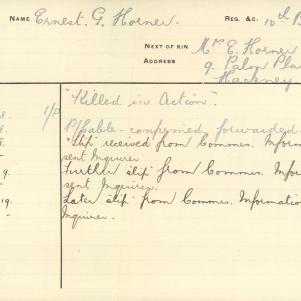 NAME Ernest. G. Horner. REG. &c. 10th B
NEXT OF KIN Mrs E. Horner
ADDRESS 9. Palon Pla
Hackney
"Killed in Action".
8. 1/P P/Cable - confirmed forwarded
8. "Slip" received from Commrs. Inform
sent Inquirer.
9. Further slip from Commrs. In
" sent Inquirer.
19. Later slip from Commrs. Information
" Inquirer.